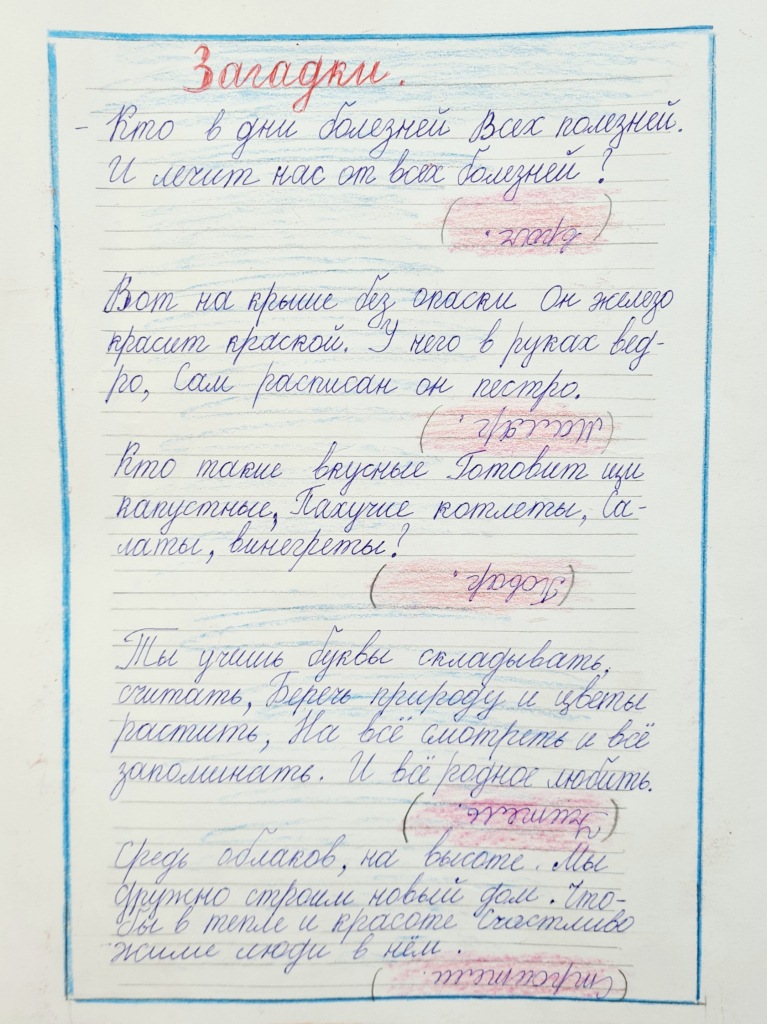 Загадки.
- Кто в дни болезней Всех полезней.
И лечит нас от всех болезней?
(врач.)
Вот на крыше без опаски Он железо
красит краской. У него в руках вед-
ро, Сам расписан он пестро.
(Маляр.)
Кто такие вкусные Готовит щи
капустные, Пахучие котлеты, Са-
латы, винегреты?
(Повар.)
Ты учишь буквы складывать,
считать, Беречь природу и цветы
растить, На всё смотреть и всё
запоминать. И всё родное любить.
(Учитель.)
Средь облаков, на высоте. Мы
дружно строим новый дом. Что-
бы в тепле и красоте Счастливо
жиме люди в нём.
(Строители.)